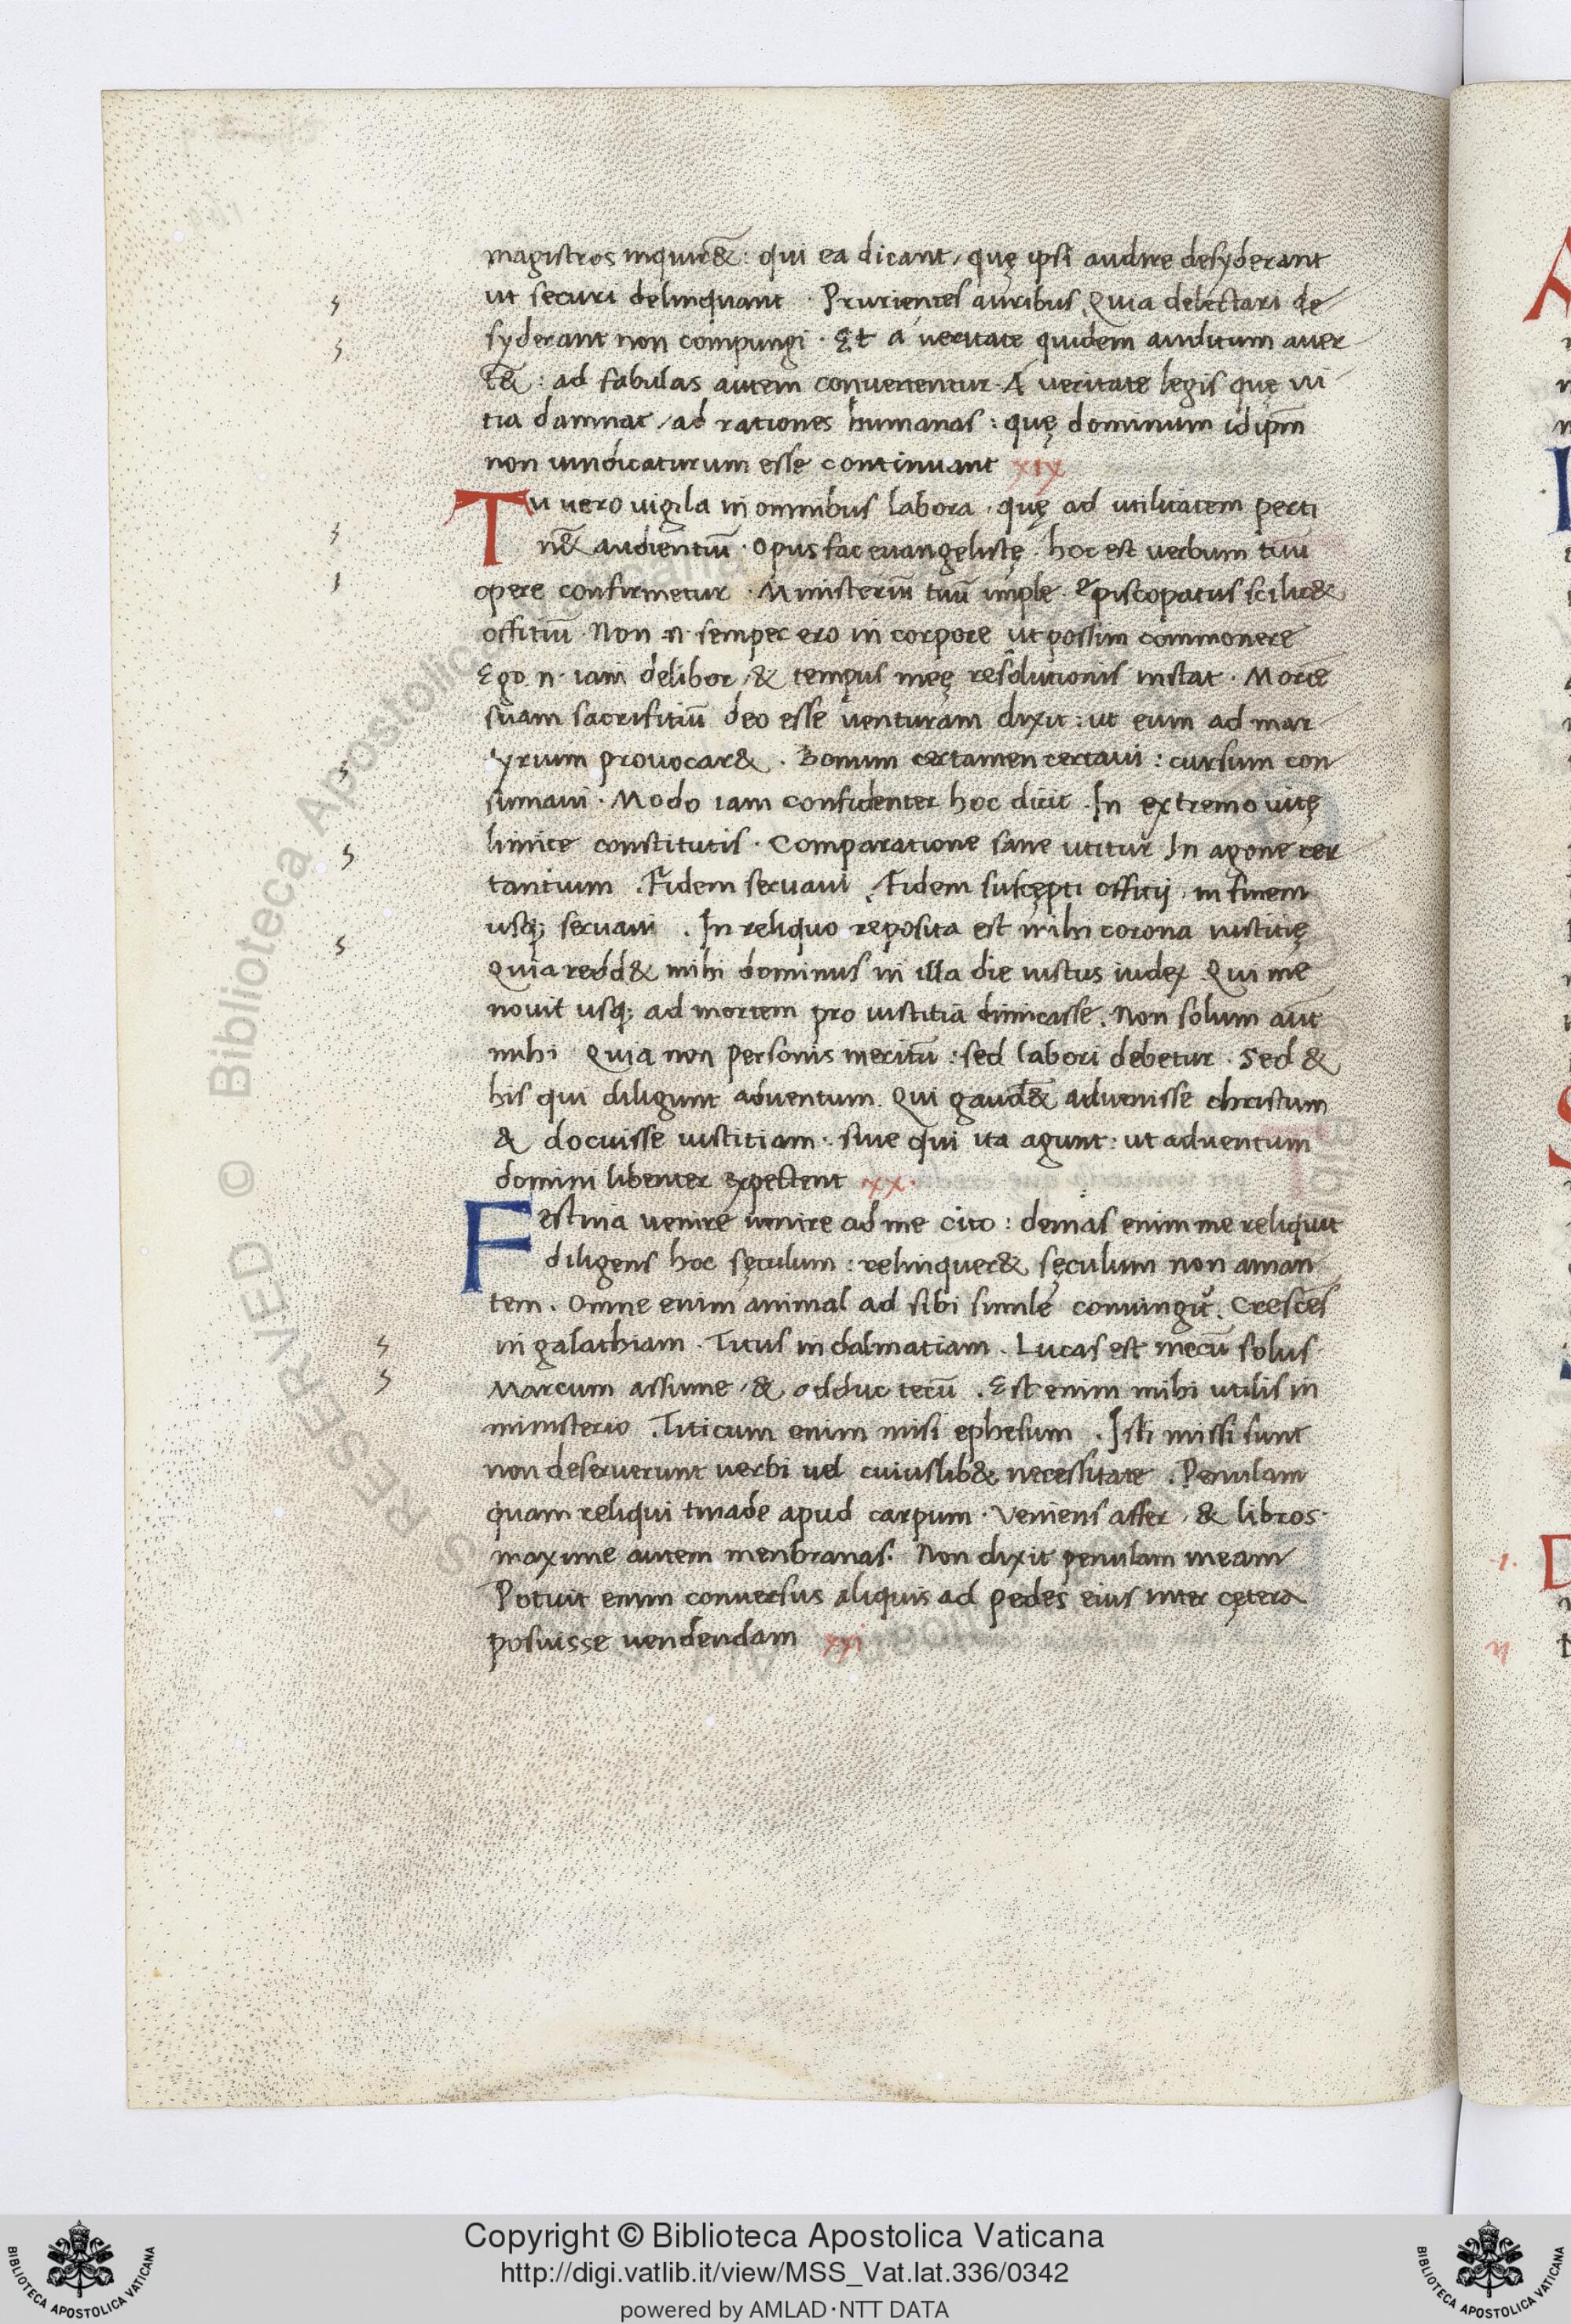 magistros inquir̄&: qui ea dicant, quę ipsi audire desyderant
ut securi delinquant · Prurientes auribus. Quia delectari de
syderant non compungi · Et a ueritate quidem auditum auer
t̄& : ad fabulas autem conuertentur. A ueritate legis quę ui
tia damnat, ad rationes humanas : quę dominum idip̄m
non uindicaturum esse continuant xix
Tu uero uigila in omnibus labora · quę ad utilitatem perti
n̄& audientiū · Opus fac euangelistę. hoc est uerbum tuū
opere confirmetur · Ministeriū tuū imple. Episcopatus scilic&
offitiū. Non .n. semper ero in corpore ut possim commonere
Ego .n. iam delibor, & tempus meę resolutionis instat. Mortē
suam sacrifitiū deo esse uenturam dixit : ut eum ad mar
tyrium prouocar&. Bonum certamen certaui : cursum con
sumaui. Modo iam confidenter hoc dicit. In extremo uitę
limite constitutis. Comparatione sane utitur In agone cer
tantium . Fidem seruaui . Fidem suscepti officij in finem
usq; seruaui . In reliquo reposita est mihi corona iustitię
Quia redd& mihi dominus in illa die iustus iudex Qui me
nouit usq; ad mortem pro iustitia dimicasse. Non solum aut̄
mihi Quia non personis meritū : sed labori debetur. Sed &
his qui diligunt aduentum. Qui gaud̄& aduenisse christum
& docuisse iustitiam : siue qui ita agunt : ut aduentum
domini libenter expectent xx.
Festina uenire uenire ad me cito : demas enim me reliquit
diligens hoc sęculum : relinquer& sęculum non aman
tem. Omne enim animal ad sibi simile coniungit̄. Crescēs
in galathiam. Titus in dalmatiam. Lucas est mecū solus
Marcum assume, & adduc tecū . Est enim mihi utilis in
ministerio . Titicum enim misi ephesum . Isti missi sunt
non deseruerunt uerbi uel cuiuslib& necessitate . Penulam
quam reliqui troade apud carpum · Veniens affer, & libros.
maxime autem menbranas. Non dixit penulam meam
Potuit enim conuersus aliquis ad pedes eius inter cętera
posuisse uendendam xxi
Copyright © Biblioteca Apostolica Vaticana
http://digi.vatlib.it/view/MSS_Vat.lat.336/0342
powered by AMLAD·NTT DATA